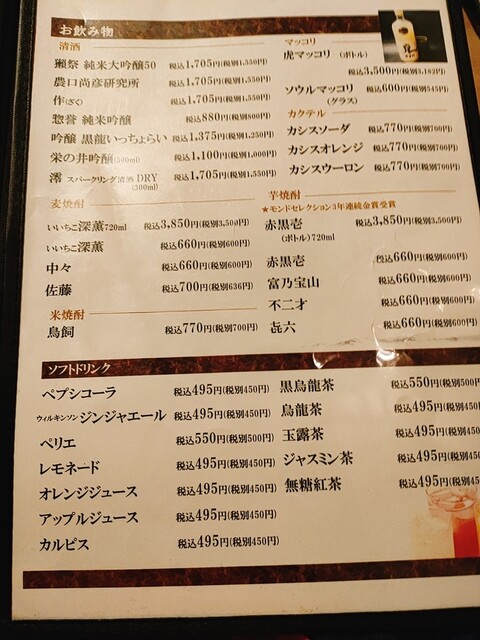 お飲み物
清酒
獺祭 純米大吟醸50 税込1,705円(税別1,550円)
農口尚彦研究所 税込1,705円(税別1,550円)
作(ざく) 税込1,705円(税別1,550円)
惣誉 純米吟醸 税込880円(税別800円)
吟醸 黒龍いっちょらい 税込1,375円(税別1,250円)
栄の井吟醸(300ml) 税込1,100円(税別1,000円)
澪 スパークリング清酒 DRY (300ml) 税込1,705円(税別1,550円)
麦焼酎
いいちこ深薫720ml 税込3,850円(税別3,500円)
いいちこ深薫 税込660円(税別600円)
中々 税込660円(税別600円)
佐藤 税込700円(税別636円)
米焼酎
鳥飼 税込770円(税別700円)
マッコリ
虎マッコリ (ボトル)
税込3,500円(税別3,182円)
ソウルマッコリ 税込600円(税別545円)
(グラス)
カクテル
カシスソーダ 税込770円(税別700円)
カシスオレンジ 税込770円(税別700円)
カシスウーロン 税込770円(税別700円)
芋焼酎
★モンドセレクション3年連続金賞受賞
赤兎壱 税込3,850円(税別3,500円)
(ボトル)720ml
赤兎壱 税込660円(税別600円)
富乃宝山 税込660円(税別600円)
不二才 税込660円(税別600円)
㐂六 税込660円(税別600円)
ソフトドリンク
ペプシコーラ 税込495円(税別450円)
ウィルキンソンジンジャエール 税込495円(税別450円)
ペリエ 税込550円(税別500円)
レモネード 税込495円(税別450円)
オレンジジュース 税込495円(税別450円)
アップルジュース 税込495円(税別450円)
カルピス 税込495円(税別450円)
黒烏龍茶 税込550円(税別500
烏龍茶 税込495円(税別450円
玉露茶 税込495円(税別450円
ジャスミン茶 税込495円(税別450円
無糖紅茶 税込495円(税別450円